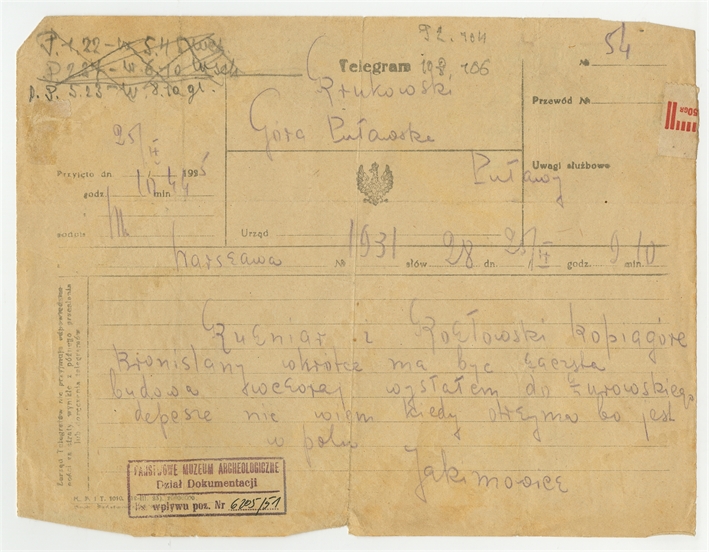 P. 1.22 - w 5.41
D 2.27 - w 6.10
D. P. 5.25 - w 8.10 gł.
92.
Telegram
Krukowski
Góra Puławska
Puławy
№ 54
Przewód №
Uwagi służbowe
50GR
Przyjęto dn 25/IV 1935
godz. 10 min. 44
Urząd
z Warszawa № 1931 słów 28 dn. 25/IV godz. 9 min. 10
Kuśniar i Kozłowski kopią górę
Bronisławy wkrótce ma być zaczęta
budowa wczoraj wysłałem do Żurowskiego
depeszę nie wiem kiedy otrzyma bo jest
w polu
Jakimowicz
Zarząd Telegrafów nie przyjmuje odpowiedzialności za straty, wynikłe z późnego przesłania lub doręczenia telegramów.
PAŃSTWOWE MUZEUM ARCHEOLOGICZNE
Dział Dokumentacji
Ks. wpływu poz. Nr 6205/51